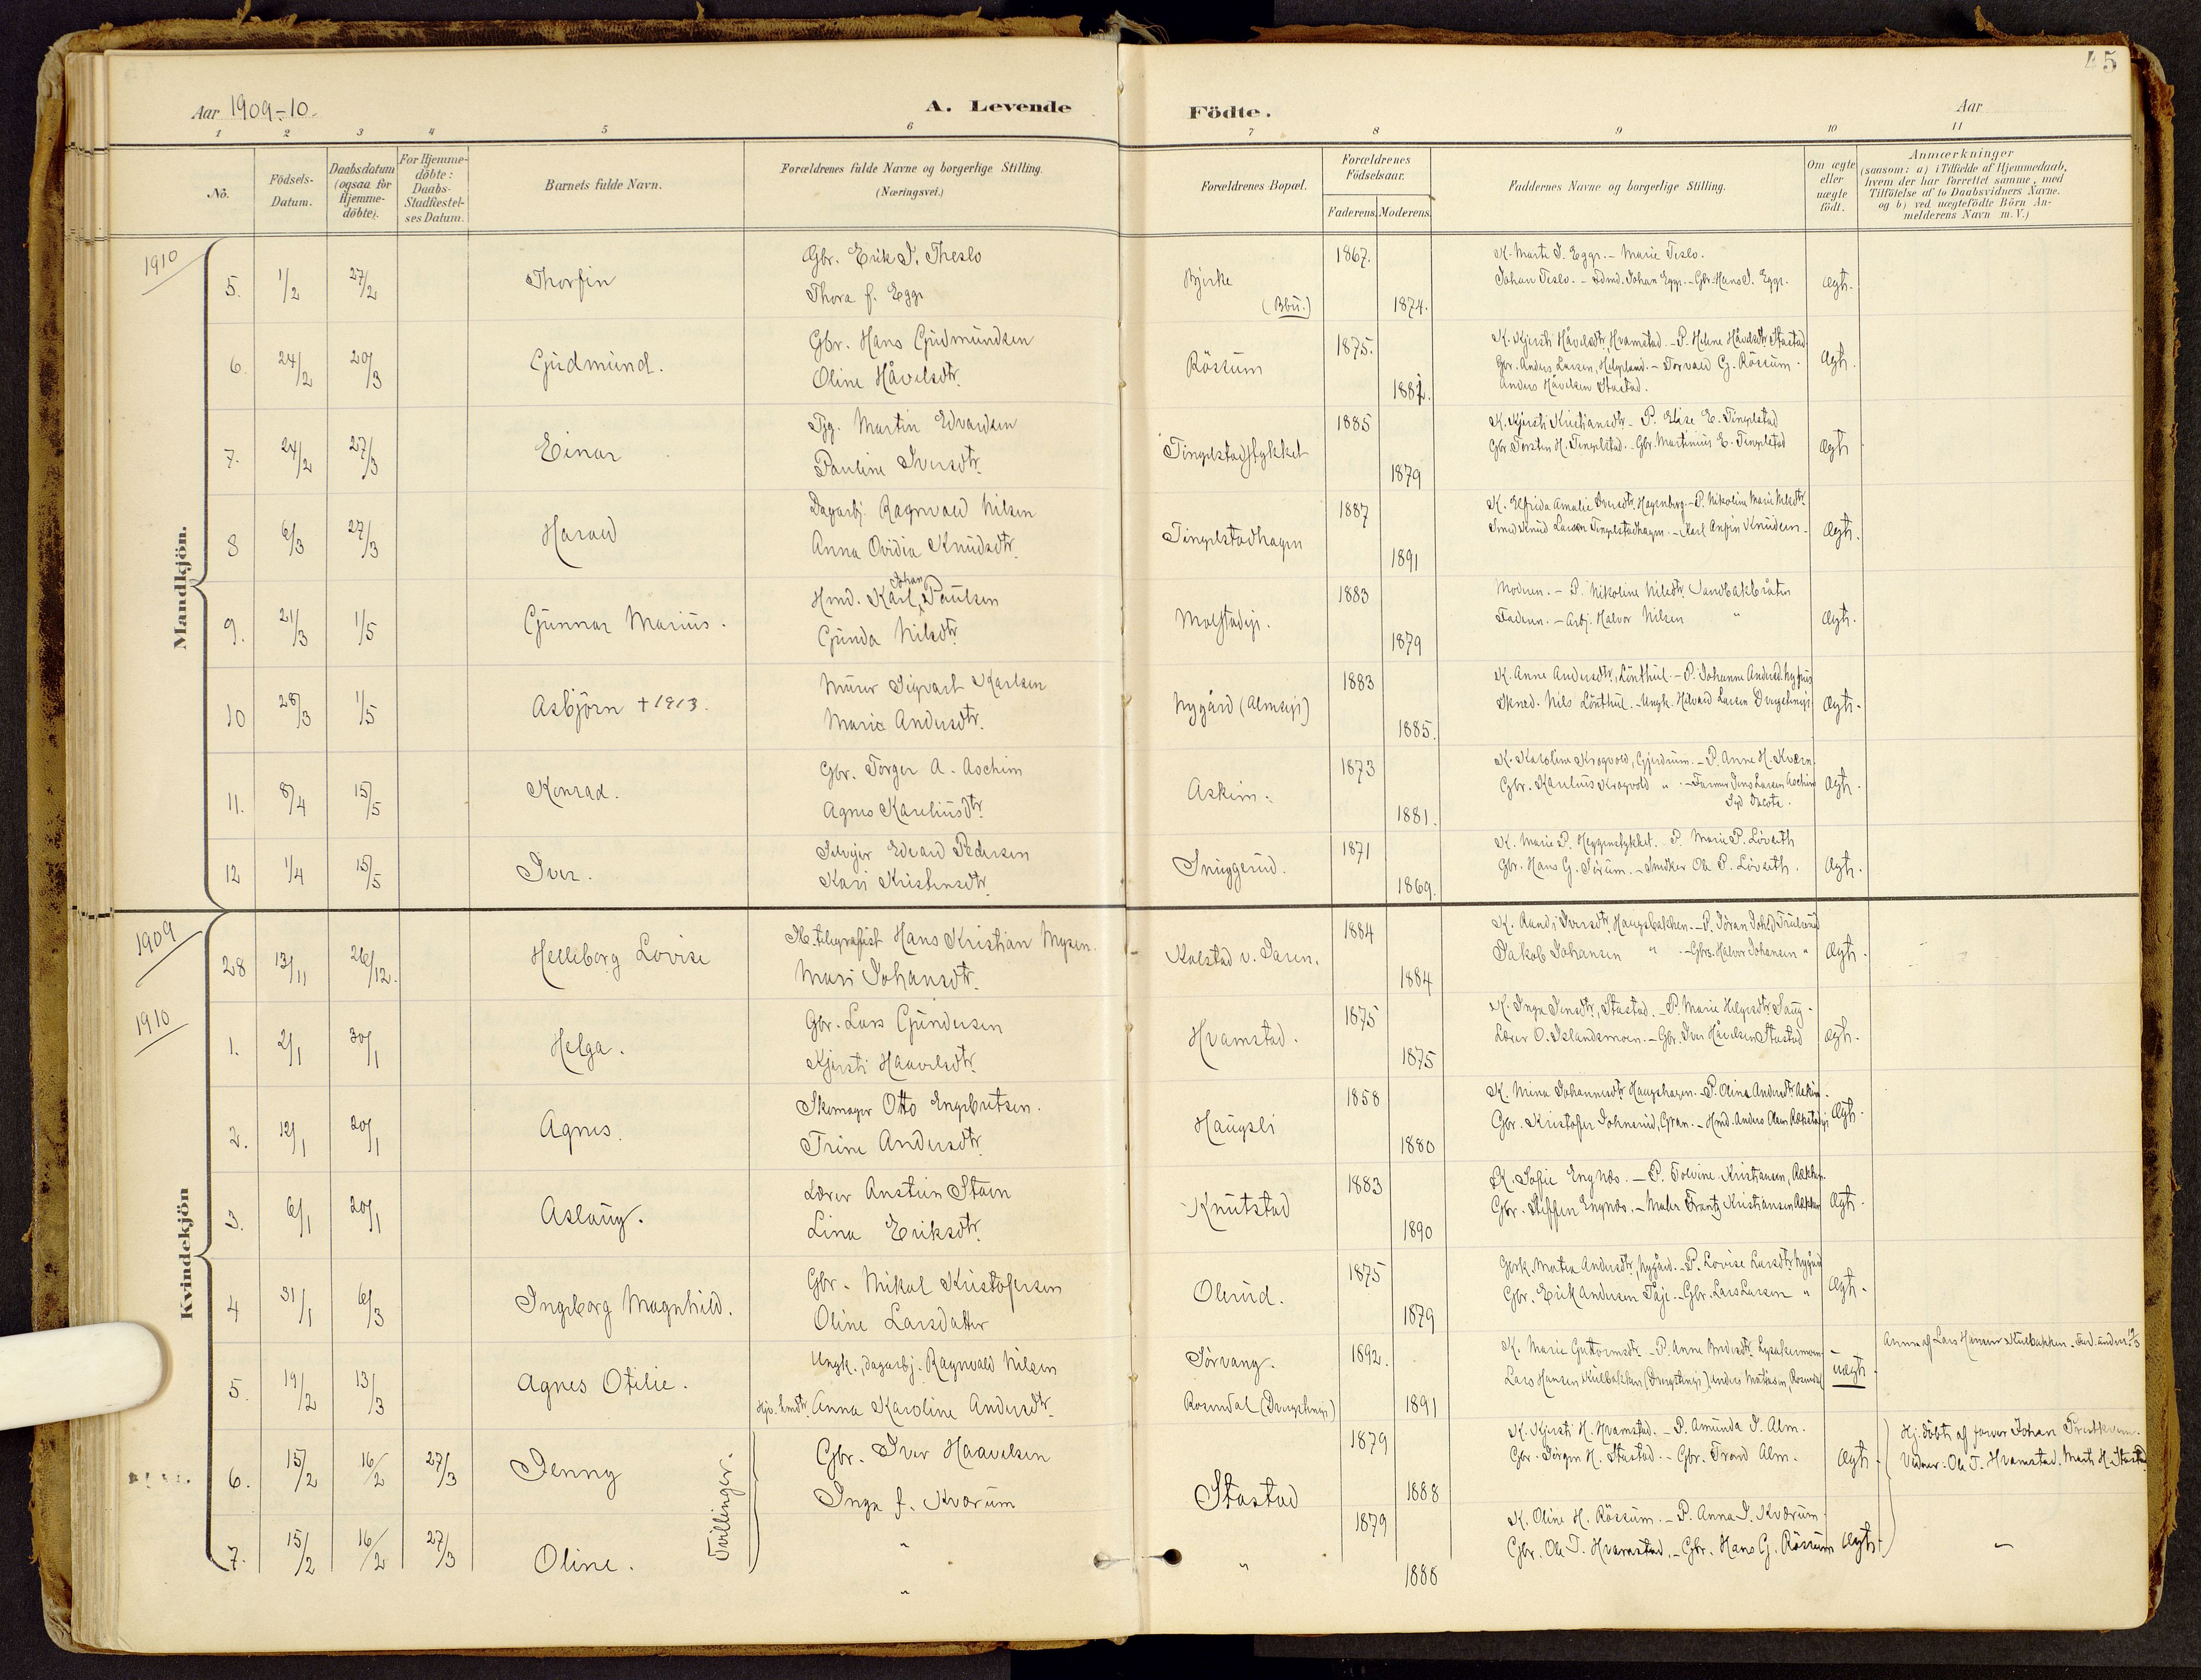 45
Aar 1909-10.
A. Levende Födte.
Aar
1 2 3 4 5 6 7 8 9 10 11
No.
Födsels-Datum.
Daabsdatum (ogsaa for Hjemme-döbte).
For Hjemme-döbte: Daabs-Stadfæstel-ses Datum.
Barnets fulde Navn.
Forældrenes fulde Navne og borgerlige Stilling. (Næringsvei.)
Forældrenes Bopæl.
Forældrenes Födselsaar.
Faderens. Moderens.
Faddernes Navne og borgerlige Stilling.
Om ægte eller uægte födt.
Anmærkninger
(saasom: a) i Tilfælde af Hjemmedaab,
hvem der har forrettet samme, med
Tilföielse af to Daabsvidners Navne.
og b) ved uægtefödte Börn An-
melderens Navn m. V.)
Mandkjön.
1910
5. 1/2 27/2 Thorfin
Gbr. Erik I. Theslo
Thora f. Egge
Bjirke (Bbu.)
1867. 1874.
K. Marte I. Egge. - Marie Teslo.
Johan Teslo. - Fdmd. Johan Egge. - Gbr. Hans I. Egge.
Ægt.
6. 24/2 20/3 Gudmund.
Gbr. Hans Gudmundsen
Oline Håvelsdtr.
Rössum
1875. 1882.
K. Kjersti Håvelsdtr, Hvamstad - P. Helene Håvelsdtr. Stastad
Gbr. Anders Larsen, Helgeland. - Torvald G. Rössum.
Anders Håvelsen Stastad.
Ægt.
7. 24/2 27/3 Einar
Tjg. Martin Edvardsen
Pauline Iversdtr.
Tingelstadstykket
1885 1879
K. Kjersti Kristiansdtr - P. Elise E. Tingelstad
Gbr. Torsten H. Tingelstad. - Gbr. Martinius E. Tingelstad
Ægt
8 6/3 27/3 Harald
Dagarbj. Ragnvald Nilsen
Anna Ovidia Knudsdtr.
Tingelstadhagen
1887 1891
K. Elfrida Amalie Iversdtr. Hagenberg. - P. Nikoline Marie Nilsdtr.
Smed Knud Larsen Tingelstadhagen. - Karl Anfin Knudsen.
Ægt.
9. 21/3 1/5 Gunnar Marius.
Hmd. Karl Johan Paulsen
Gunda Nilsdtr.
Molstadeje.
1883 1879
Moderen. - P. Nikoline Nilsdtr. Sandbakbråten
Faderen. - Arbj. Halvor Nilsen "
Ægt.
10 28/3 1/5 Asbjörn + 1913.
Murer Sigvart Karlsen
Marie Andersdtr.
Nygård (Almseje)
1883 1885.
K. Anne Andersdtr, Lönthul - P. Johanne Andersd.
Skræd. Nils Lönthul. - Ungk. Hilvard Larsen
Ægt.
11. 8/4 15/5 Konrad.
Gbr. Torger A. Aschim
Agnes Kareliusdtr.
Askim.
1873 1881.
K. Karoline Krogvold, Gjerdrum. - P. Anne H. Kværn.
Gbr. Karelius Krogvold " - Farmer Jens Larsen Aschim
Syd Dacota.
Ægt.
12 1/4 15/5 Iver.
Selvejer Edvard Pedersen
Kari Kristensdtr.
Snuggerud.
1871 1869.
K. Marie P. Heggenstykket. P. Marie P. Löveith
Gbr. Hans G. Sörum. - Snedker Ole P. Löveith.
Ægt.
Kvindekjön
1909
28 13/11 26/12. Helleborg Lovise
Hans Kristian Mysen.
Mari Johansdtr.
Kolstad v. Jaren.
1884 1884
K. Randi Iversdtr. Haugsbakken. - P. Jöran
Jakob Johansen " - Gbrs. Halvor Johansen "
Ægt.
1910
1. 2/1 30/1 Helga.
Gbr. Lars Gundersen
Kjersti Haavelsdtr.
Hvamstad.
1875 1875
K. Inga Jensdtr, Stastad. - P. Marie Helgesdtr. Saug.
Lærer O. Islandsmoen. - Gbr. Iver Håvelsen Stastad
Ægt.
2. 12/1 20/1 Agnes.
Skomager Otto Engebretsen.
Trine Andersdtr.
Haugsli
1858 1880
K. Mina Johannesdtr Haugshagen. - P. Olina Andersdtr. Askim.
Gbr. Kristofer Johnsrud, Gran. - Hmd. Anders Olsen
Ægt.
3. 6/1 20/1 Aslaug.
Lærer Anstein Staen
Lina Eriksdtr.
Knutstad
1883 1890
K. Sofie Engnæs. - P. Tolvine Kristiansen,
Gbr. Steffen Engnæs. - Maler Frantz Kristiansen
Ægt.
4 31/1 6/3 Ingeborg Magnhild.
Gbr. Mikal Kristofersen
Oline Larsdatter
Olerud.
1875 1879
Gbrk. Matea Andersdtr, Nygård. - P. Lovise Larsdtr. Nygård
Gbr. Erik Andersen Täje. - Gbr. Lars Larsen "
Ægt.
5. 19/2 13/3 Agnes Otilie.
Ungk., dagarbj. Ragnvald Nilsen
Anna Karoline Andersdtr.
Sörvang.
Rosendal
1892. 1891
K. Marie Guttormsdtr. - P. Anne Andersdtr.
Lars Hansen Kuebakken Anders Mathisen, Rosendal
uægt
Anm. af Lars Hansen Kuebakken.
Tvillinger.
6. 15/2 16/2 27/3 Jenny
Gbr. Iver Haavelsen
Inga f. Kværum
Stastad
1879 1888
K. Kjersti H. Hvamstad. - P. Amunda I. Alm.
Gbr. Jörgen H. Stastad. - Gbr. Trond Alm.
Ægt.
Hj. döbt af Johan
Vidner: Ole T. Hvamstad, Marte H. Stastad
7. 15/2 16/2 27/3 Oline.
"
"
"
1879 1888
K. Oline H. Rössum. - P. Anna I. Kværum.
Gbr. Ole T. Hvamstad. - Gbr. Hans G. Rössum
Ægt.
"